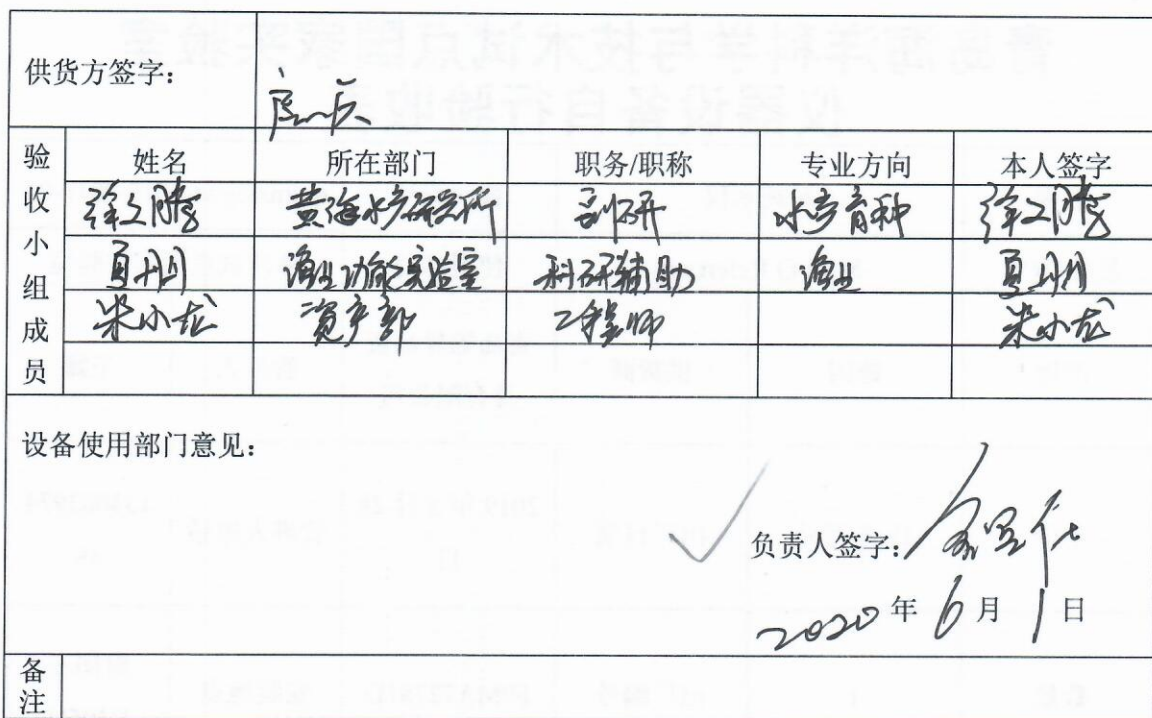 供货方签字:
验收小组成员 姓名 所在部门 职务/职称 专业方向 本人签字
徐文腾 黄海水产研究所 副研 水产育种 徐文腾
夏丹丹 渔业功能实验室 科研辅助 渔业 夏丹丹
朱小龙 资产部 工程师 朱小龙
设备使用部门意见:
负责人签字:
2020年6月1日
备注